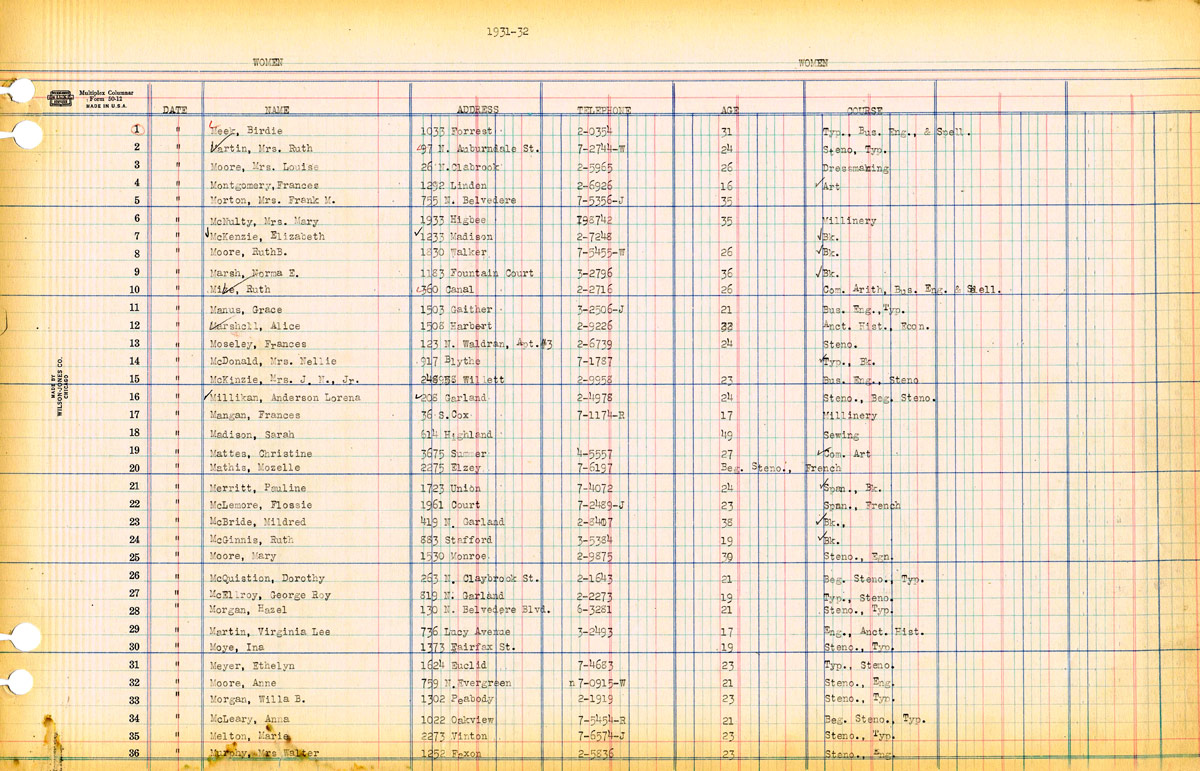 1931-32
WOMEN WOMEN
Multiplex Columnar
Form 50-12
MADE IN U.S.A.
DATE NAME ADDRESS TELEPHONE AGE COURSE
1 " Meek, Birdie 1033 Forrest 2-0354 31 Typ., Bus. Eng., & Spell.
2 " Martin, Mrs. Ruth 97 N. Auburndale St. 7-2744-W 24 Steno, Typ.
3 " Moore, Mrs. Louise 26 N. Clabrook 2-5965 26 Dressmaking
4 " Montgomery,Frances 1292 Linden 2-6926 16 Art
5 " Morton, Mrs. Frank M. 755 N. Belvedere 7-5356-J 35
6 " McNulty, Mrs. Mary 1933 Higbee 798742 35 Millinery
7 " McKenzie, Elizabeth 1233 Madison 2-7248 Bk.
8 " Moore, RuthB. 1830 Walker 7-5455-W 26 Bk.
9 " Marsh, Norma E. 1183 Fountain Court 3-2796 36 Bk.
10 " Ruth 360 Canal 2-2716 26 Com. Arith, Bus. Eng. & Spell.
11 " Manus, Grace 1503 Gaither 3-2506-J 21 Bus. Eng.,Typ.
12 " Marshell, Alice 1508 Harbert 2-9226 32 Anct. Hist., Econ.
13 " Moseley, Frances 123 N. Waldran, Apt.#3 2-6739 24 Steno.
14 " McDonald, Mrs. Nellie 917 Blythe 7-1787 Typ., Bk.
15 " McKinzie, Mrs. J. N., Jr. Willett 2-9958 23 Bus. Eng., Steno
16 " Millikan, Anderson Lorena 208 Garland 2-4978 24 Steno., Beg. Steno.
17 " Mangan, Frances 36 S. Cox 7-1174-R 17 Millinery
18 " Madison, Sarah 614 Highland 49 Sewing
19 " Mattes, Christine 3675 Summer 4-5557 27 Com. Art
20 " Mathis, Mozelle 2275 Elzey 7-6197 Beg. Steno., French
21 " Merritt, Pauline 1723 Union 7-4072 24 Span., Bk.
22 " McLemore, Flossie 1961 Court 7-2489-J 23 Span., French
23 " McBride, Mildred 419 N. Garland 2-8407 38 Bk.,
24 " McGinnis, Ruth 883 Stafford 3-5384 19 Bk.
25 " Moore, Mary 1530 Monroe 2-9875 39 Steno., Egn.
26 " McQuistion, Dorothy 263 N. Claybrook St. 2-1643 21 Beg. Steno., Typ.
27 " McEllroy, George Roy 819 N. Garland 2-2273 19 Typ., Steno.
28 " Morgan, Hazel 130 N. Belvedere Blvd. 6-3281 21 Steno., Typ.
29 " Martin, Virginia Lee 736 Lucy Avenue 3-2493 17 Eng., Anct. Hist.
30 " Moye, Ina 1373 Fairfax St. 19 Steno., Typ.
31 " Meyer, Ethelyn 1624 Euclid 7-4683 23 Typ., Steno.
32 " Moore, Anne 759 N.Evergreen n7-0915-W 21 Steno., Eng.
33 " Morgan, Willa B. 1302 Peabody 2-1919 23 Steno., Typ.
34 " McLeary, Anna 1022 Oakview 7-5454-R 21 Beg. Steno., Typ.
35 " Melton, Marie 2273 Vinton 7-6574-J 23 Steno., Typ.
36 " Murphy, Mrs Walter 1252 Faxon 2-5836 23 Steno., Eng.
MADE BY
WILSON-JONES CO.
CHICAGO